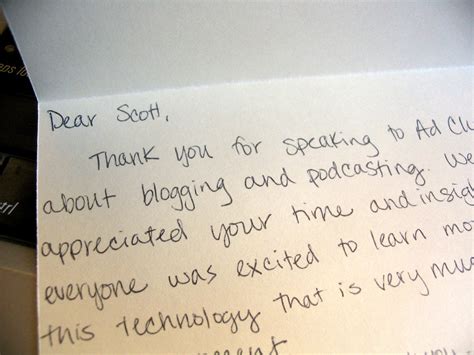 Dear Scott,
Thank you for speaking to Ad Clu
about blogging and podcasting. We
appreciated your time and insigh
everyone was excited to learn mo
this technology that is very muc